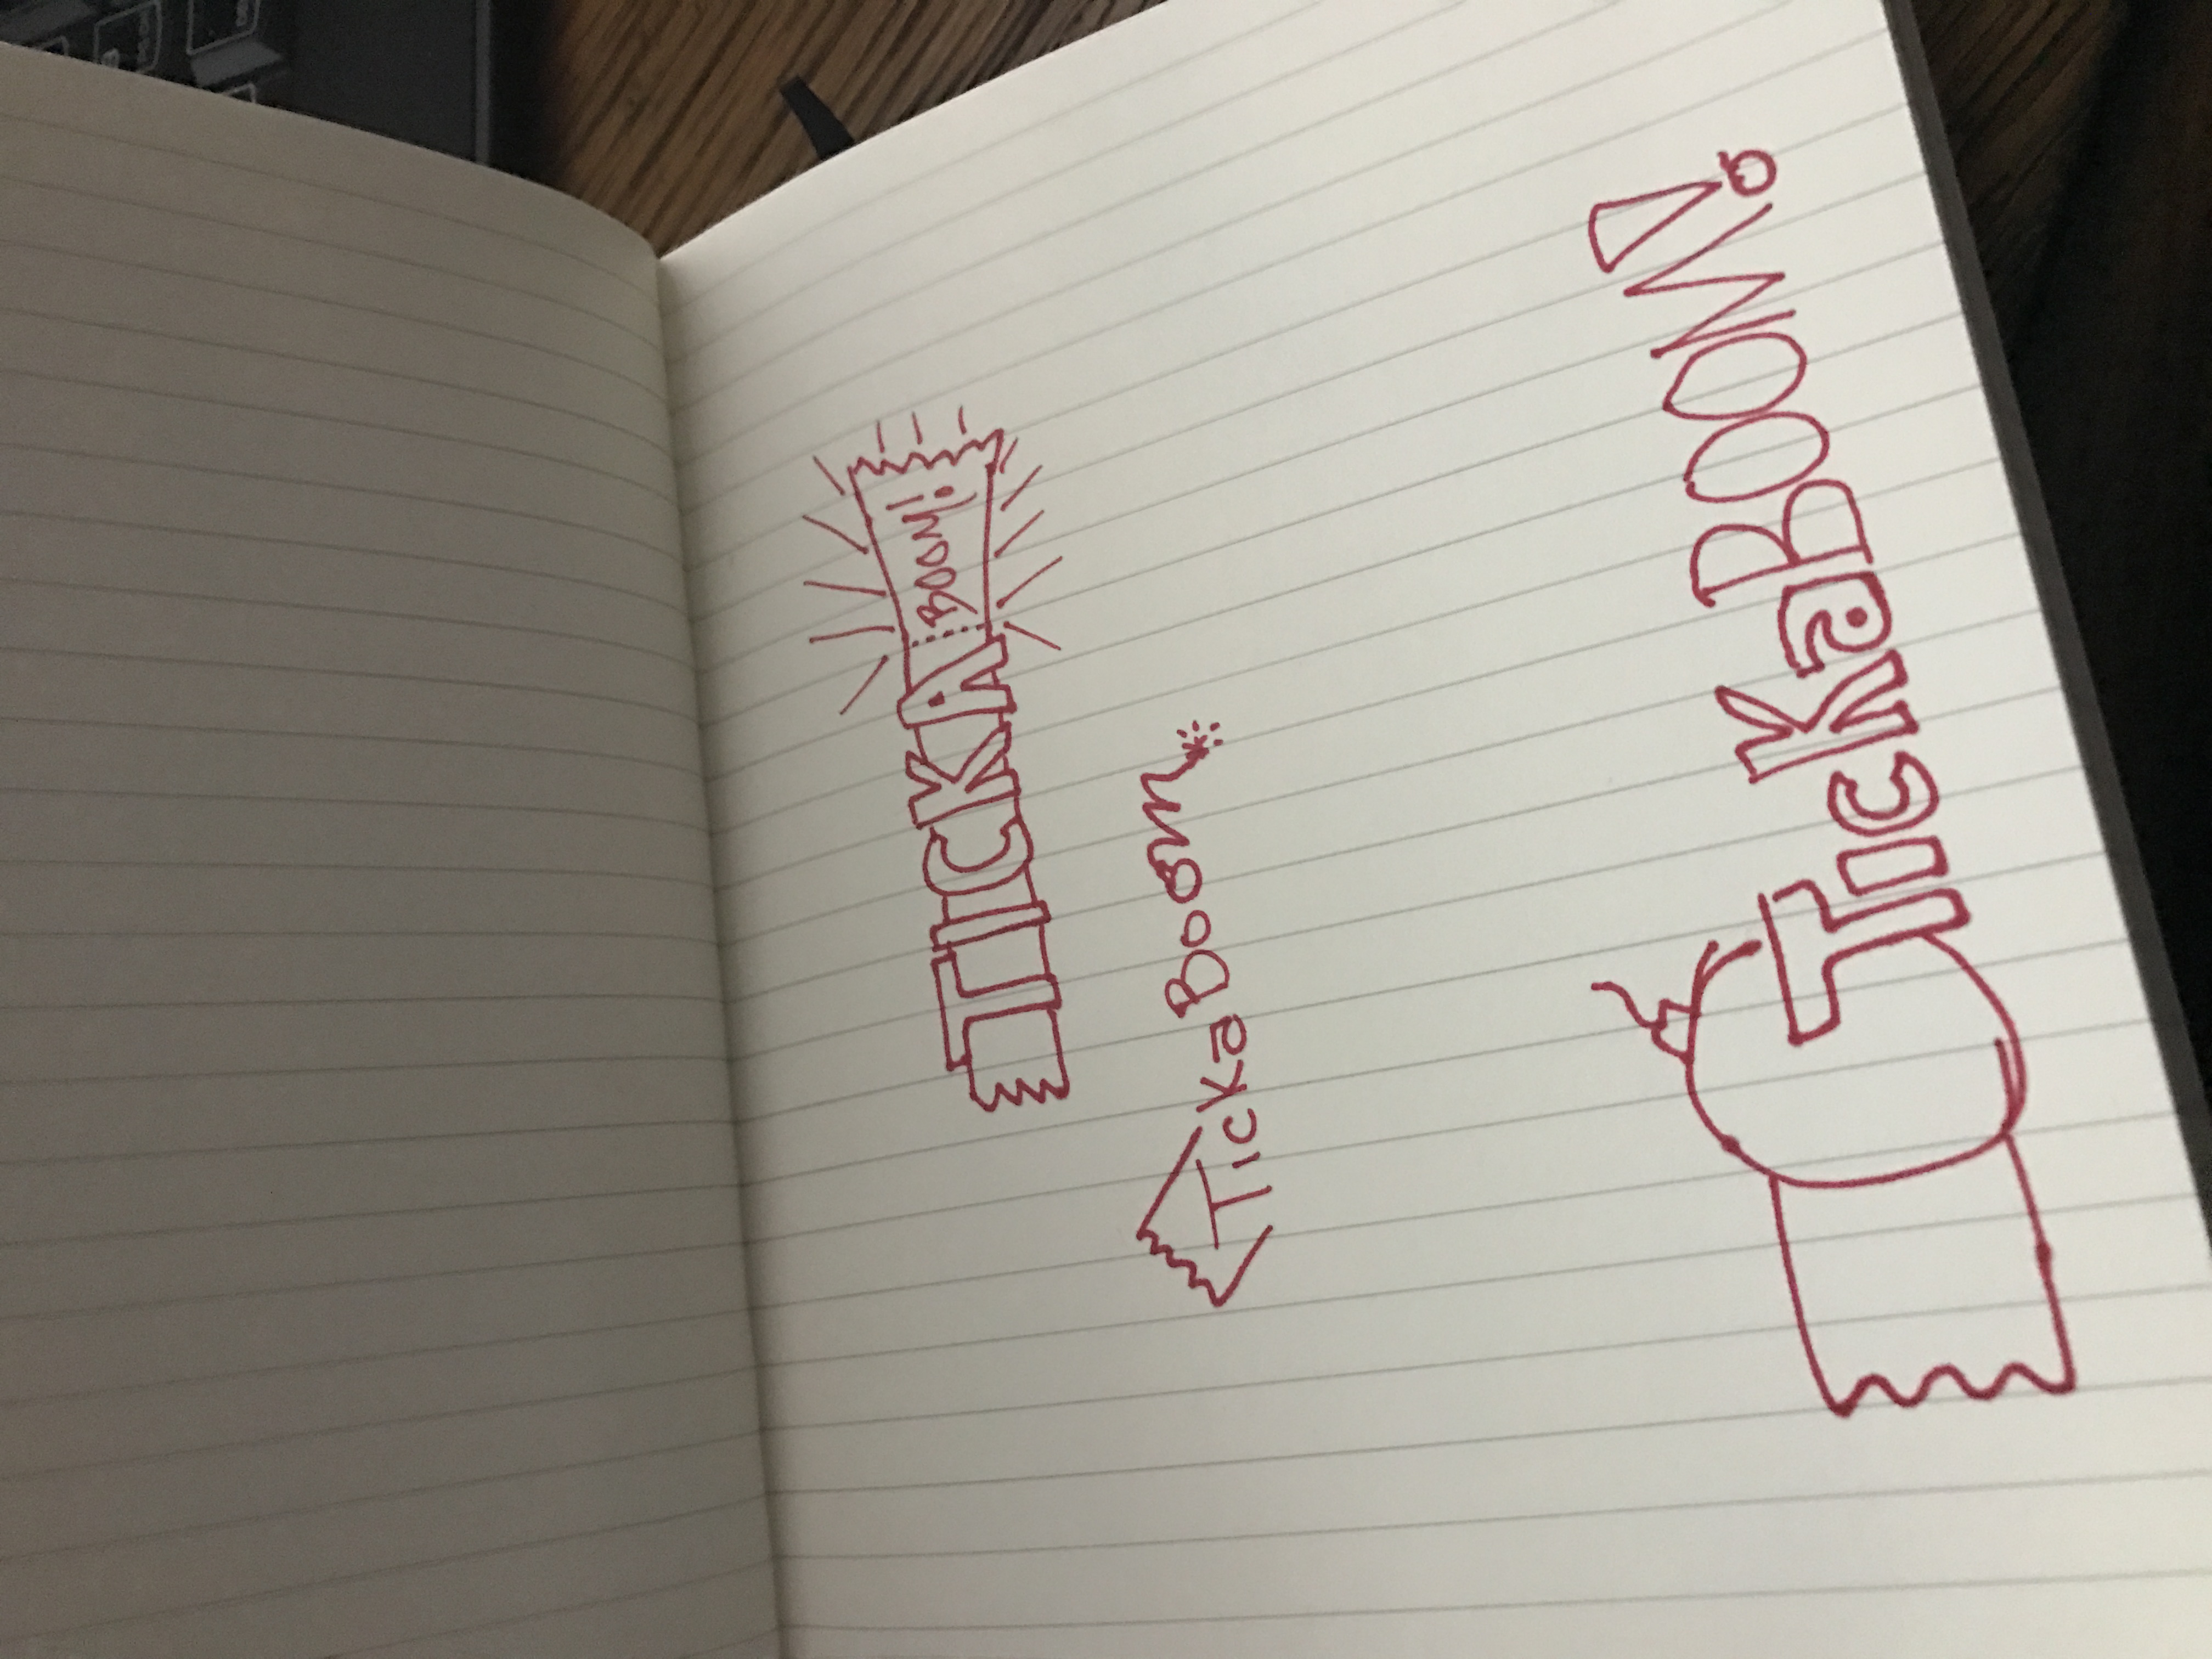 TICKA BOOM!
TicKa Boom
TicKaBOOM!